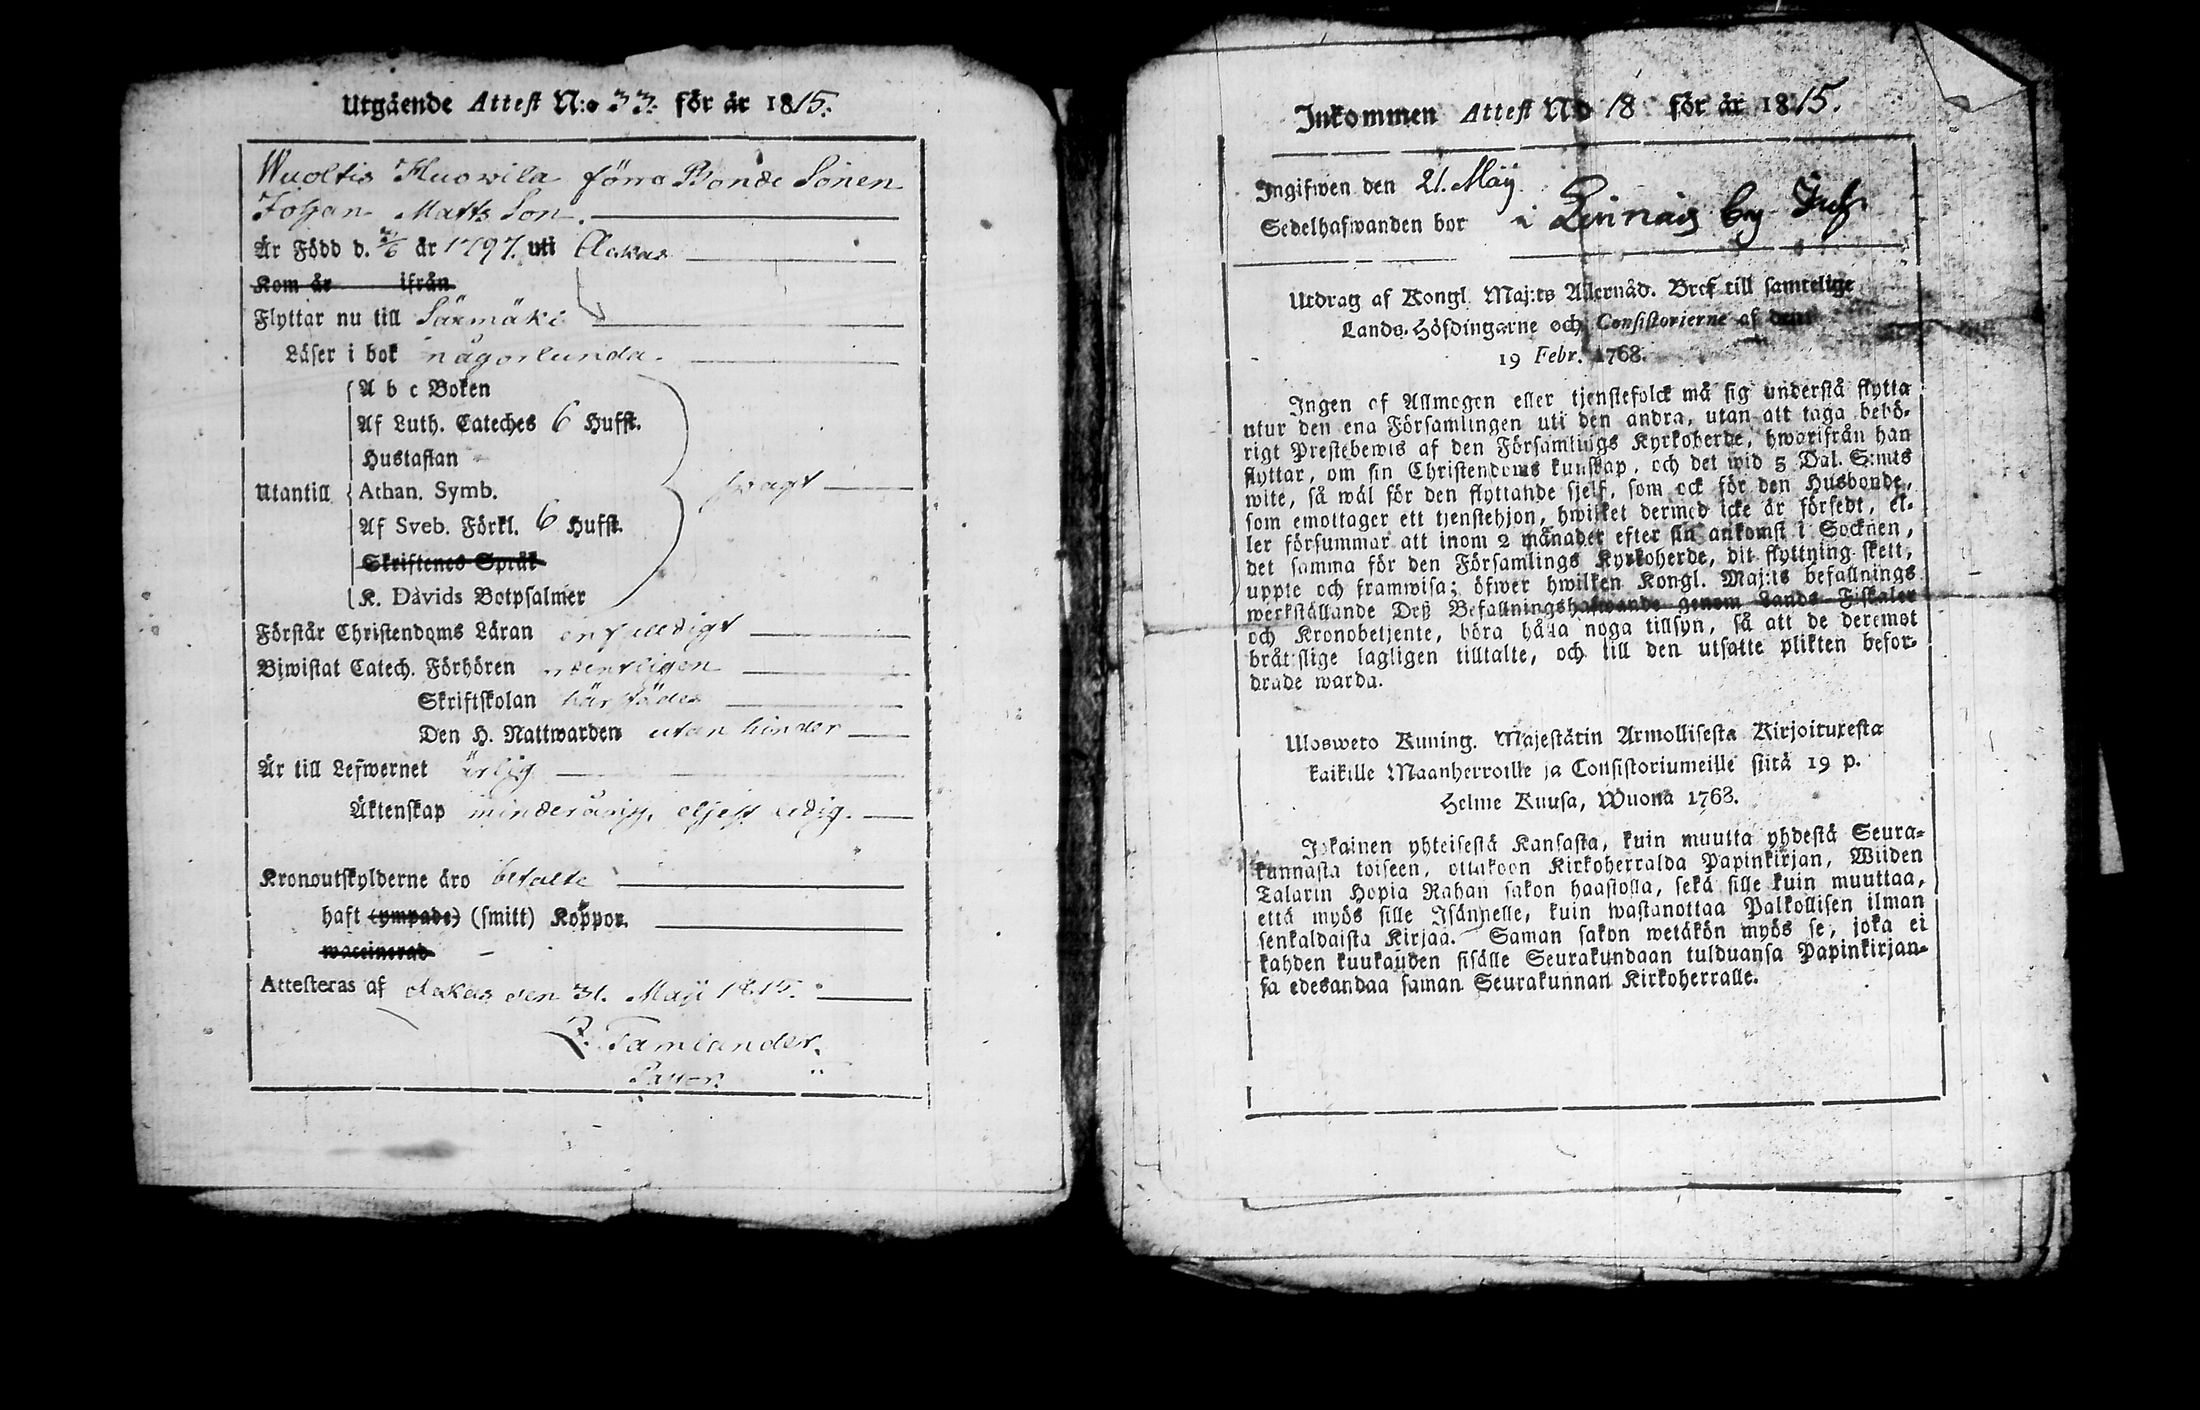 Utgående Attest N:o 33. för år 1815.
Wuoltis Huowila förra Bonde Sonen
Johan Matts Son.
Är Född d. /6 år 1797. uti Ackas
Kom år ifrån
Flyttar nu till Särmäki
Läser i bok någorlunda.
A b c Boken
Af Luth. Cateches 6 Hufst.
Hustaflan
Utantill Athan. Symb. swagt
Af Sveb. Förkl. 6 Hufst.
Skriftenes Språk
K. Davids Botpsalmer
Förstår Christendoms Läran enfaldigt
Bjwistat Catech. Förhören ordentligen
Skriftskolan härstädes
Den H. Nattwarden utan hinder
Är till Lefwernet ärlig
Äktenskap minderårig, eljest ledig.
Kronoutskylderne äro betalte
haft (ympade) (smitt) Koppor.
waccinerad
Attesteras af Ackas den 31. Maji 1815.
Tamlander.
Pastor.
Inkommen Attest No 18 för år 1815.
Ingifwen den 21. Maij
Sedelhafwanden bor i Linnais by
Utdrag af Kongl. Maj:ts Allernåd. Bref till samtelige
Lands-Höfdingarne och Consistorierne af den
19 Febr. 1768.
Ingen af Allmogen eller tjenstefolck må sig understå flytta
utur den ena Församlingen uti den andra, utan att taga behö-
rigt Prestebewis af den Församlings Kyrkoherde, hwarifrån han
flyttar, om sin Christendoms kunskap, och det wid 5 Dal. S:mts
wite, så wäl för den flyttande sjelf, som ock för den Husbonde,
som emottager ett tjenstehjon, hwilket dermed icke är försedt, el-
ler försummar att inom 2 månader efter sin ankomst i Socknen,
det samma för den Församlings Kyrkoherde, dit flyttning skett,
uppte och framwisa; öfwer hwilken Kongl. Maj:ts befallnings
werkställande Deß Befallningshafwande genom Lands Fiskaler
och Kronobetjente, böra hålla noga tillsyn, så att de deremot
bråtslige lagligen tilltalte, och till den utsatte plikten befor-
drade warda.
Ulosweto Kuning. Majestätin Armollisesta Kirjoituxesta
kaikille Maanherroille ja Consistoriumeille siitä 19 p.
Helme Kuusa, Wuona 1768.
Jokainen yhteisestä Kansasta, kuin muutta yhdestä Seura-
kunnasta toiseen, ottakoon Kirkoherralda Papinkirjan, Wiiden
Talarin Hopia Rahan sakon haastolla, sekä sille kuin muuttaa,
että myös sille Isännelle, kuin wastanottaa Palkollisen ilman
senkaldaista Kirjaa. Saman sakon wetäkön myös se, joka ei
kahden kuukauden sisälle Seurakundaan tulduansa Papinkirjan-
sa edesandaa saman Seurakunnan Kirkoherralle.